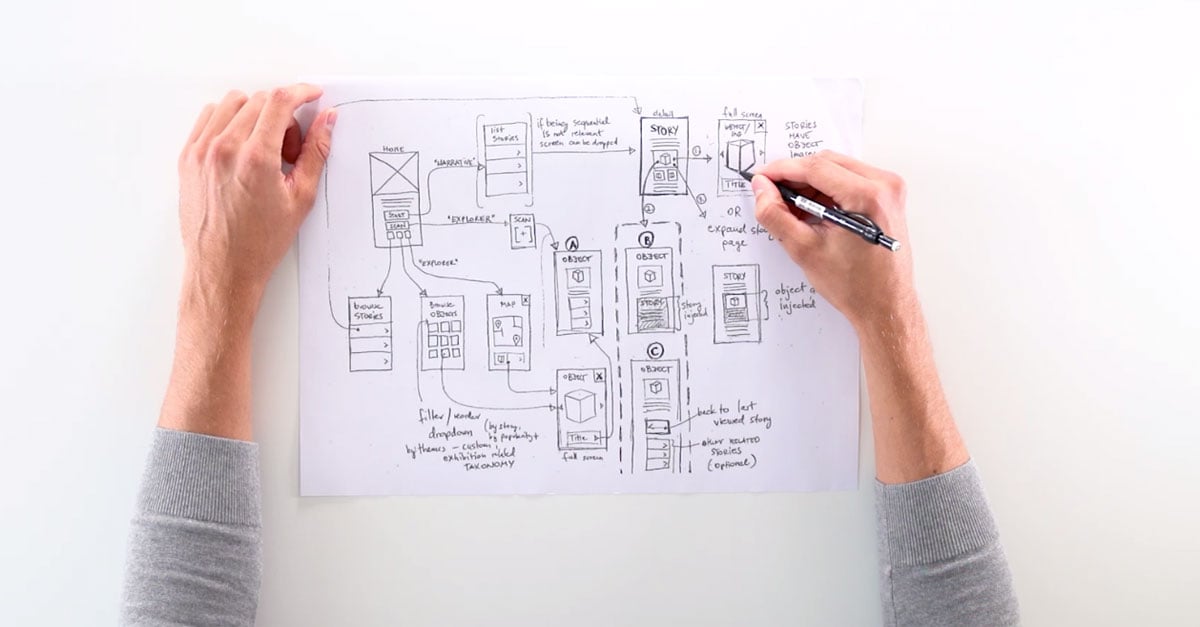 HOME
START
SCAN
"NARRATIVE"
list
STORIES
if being sequential
is not relevant
screen can be dropped
detail
STORY
1
2
2
full screen
X
TITLE
STORIES
HAVE
OBJECT
OR
expand
page
"EXPLORER"
SCAN
"EXPLORER"
browse
STORIES
Browse
OBJECTS
MAP
X
A
OBJECT
B
OBJECT
STORY
story
injected
STORY
object
injected
C
OBJECT
back to last
viewed story
other RELATED
STORIES
(optional)
OBJECT
X
Title
full screen
filter/reorder
dropdown
(by story,
by popularity +
by themes – custom,
exhibition related
TAXONOMY